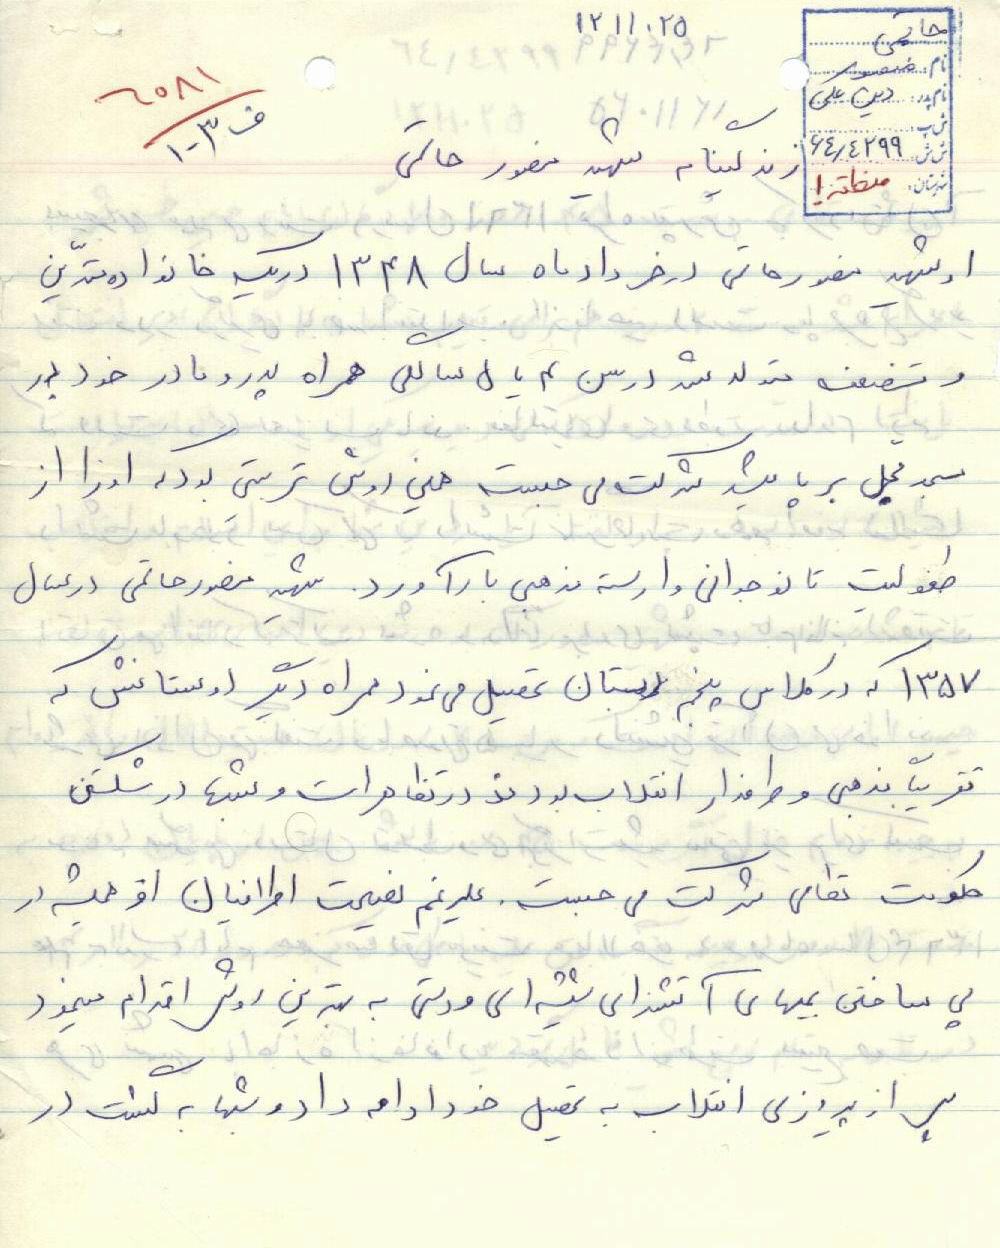 ۱۲۱۱۰۲۵
حاتمی
نام: منصور
نام پدر: دین علی
ش پ:
ش ش: ۶۴/۴۲۹۹
شهرستان: منطقه ۱
۲۰۸۱
ف ۳-۱
زندگینامه شهید منصور حاتمی
او شهید منصور حاتمی در خرداد ماه سال ۱۳۴۸ در یک خانواده متدین
و مستضعف متولد شد در سن ۴ یا ۵ سالگی همراه پدر و مادر خود در
مسجد محل بر پا میشد شرکت می جست همین روش تربیتی بود که او را از
طفولیت تا نوجوانی وارسته مذهبی بار آورد. شهید منصور حاتمی در سال
۱۳۵۷ که در کلاس پنجم دبستان تحصیل می نمود همراه دیگر دوستانش که
تقریباً مذهبی و طرفدار انقلاب بودند در تظاهرات و شبها در شکستن
حکومت نظامی شرکت می جست. علیرغم نصیحت اطرافیان او همیشه در
پی ساختن بمبهای آتشزای شیشه ای و دستی به بهترین روش اقدام مینمود
پس از پیروزی انقلاب به تحصیل خود ادامه داد و شبها به گشت در